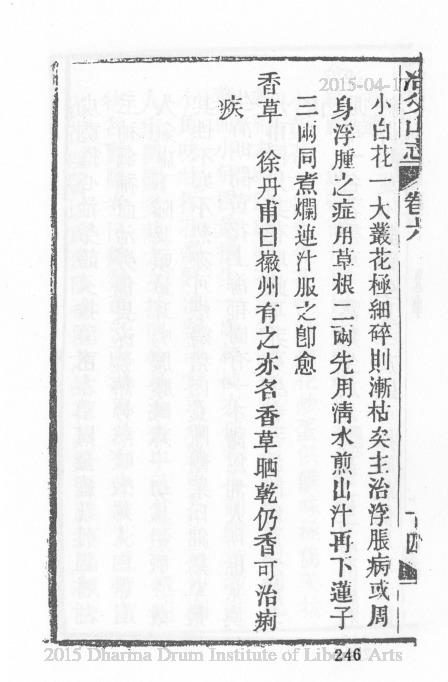 2015-04-1
治山志
卷六
十四
小白花一大叢花極細碎則漸枯矣主治浮脹病或周
身浮腫之症用草根二兩先用淸水煎出汁再下蓮子
三兩同煮爛連汁服之卽愈
香草　徐丹甫曰徽州有之亦名香草晒乾仍香可治痢
疾
246
2015 Dharma Drum Institute of Liberal Arts